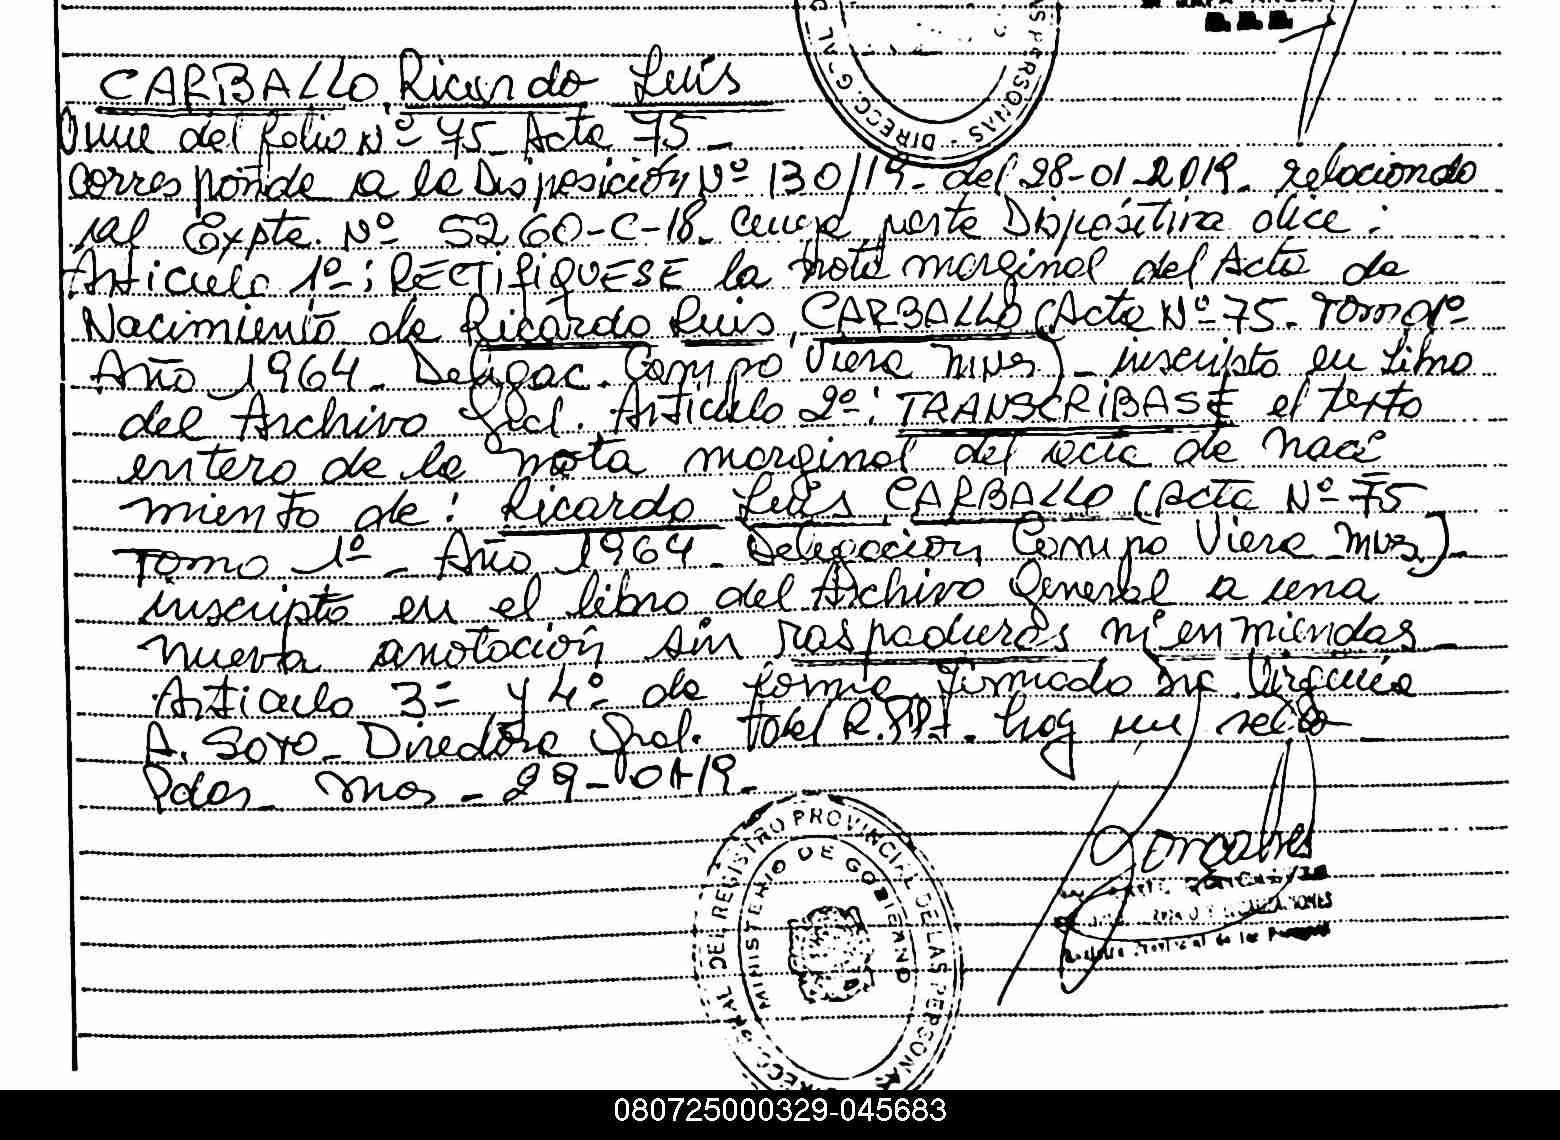 CARBALLO Ricardo Luis
Viene del folio Nº 75_ Acta 75_
corresponde a la Disposición Nº 130/19_ del 28-01-2019_ relacionado
al Expte. Nº 5260-C-18_ cuya parte Dispositiva dice:
Artículo 1º: RECTIFIQUESE la nota marginal del Acta de
Nacimiento de Ricardo Luis CARBALLO (Acta Nº 75_ Tomo 1º
Año 1964_ Delegac. Campo Viera Mnes)_ inscripto en Libro
del Archivo Gral. Artículo 2º: TRANSCRIBASE el texto
entero de la nota marginal del acta de naci
miento de: Ricardo Luis CARBALLO (Acta Nº 75
Tomo 1º_ Año 1964_ Delegación Campo Viera Mnes.)_
inscripto en el libro del Archivo General a una
nueva anotación sin raspaduras ni enmiendas_
Artículo 3º y 4º de forma. Firmado Virginia
A. Soto_ Directora Gral. hay un sello
Pdas_ Mnes_ 29-01-19_
DIRECC. GRAL. DEL REGISTRO PROVINCIAL DE LAS PERSONAS
MINISTERIO DE GOBIERNO
080725000329-045683